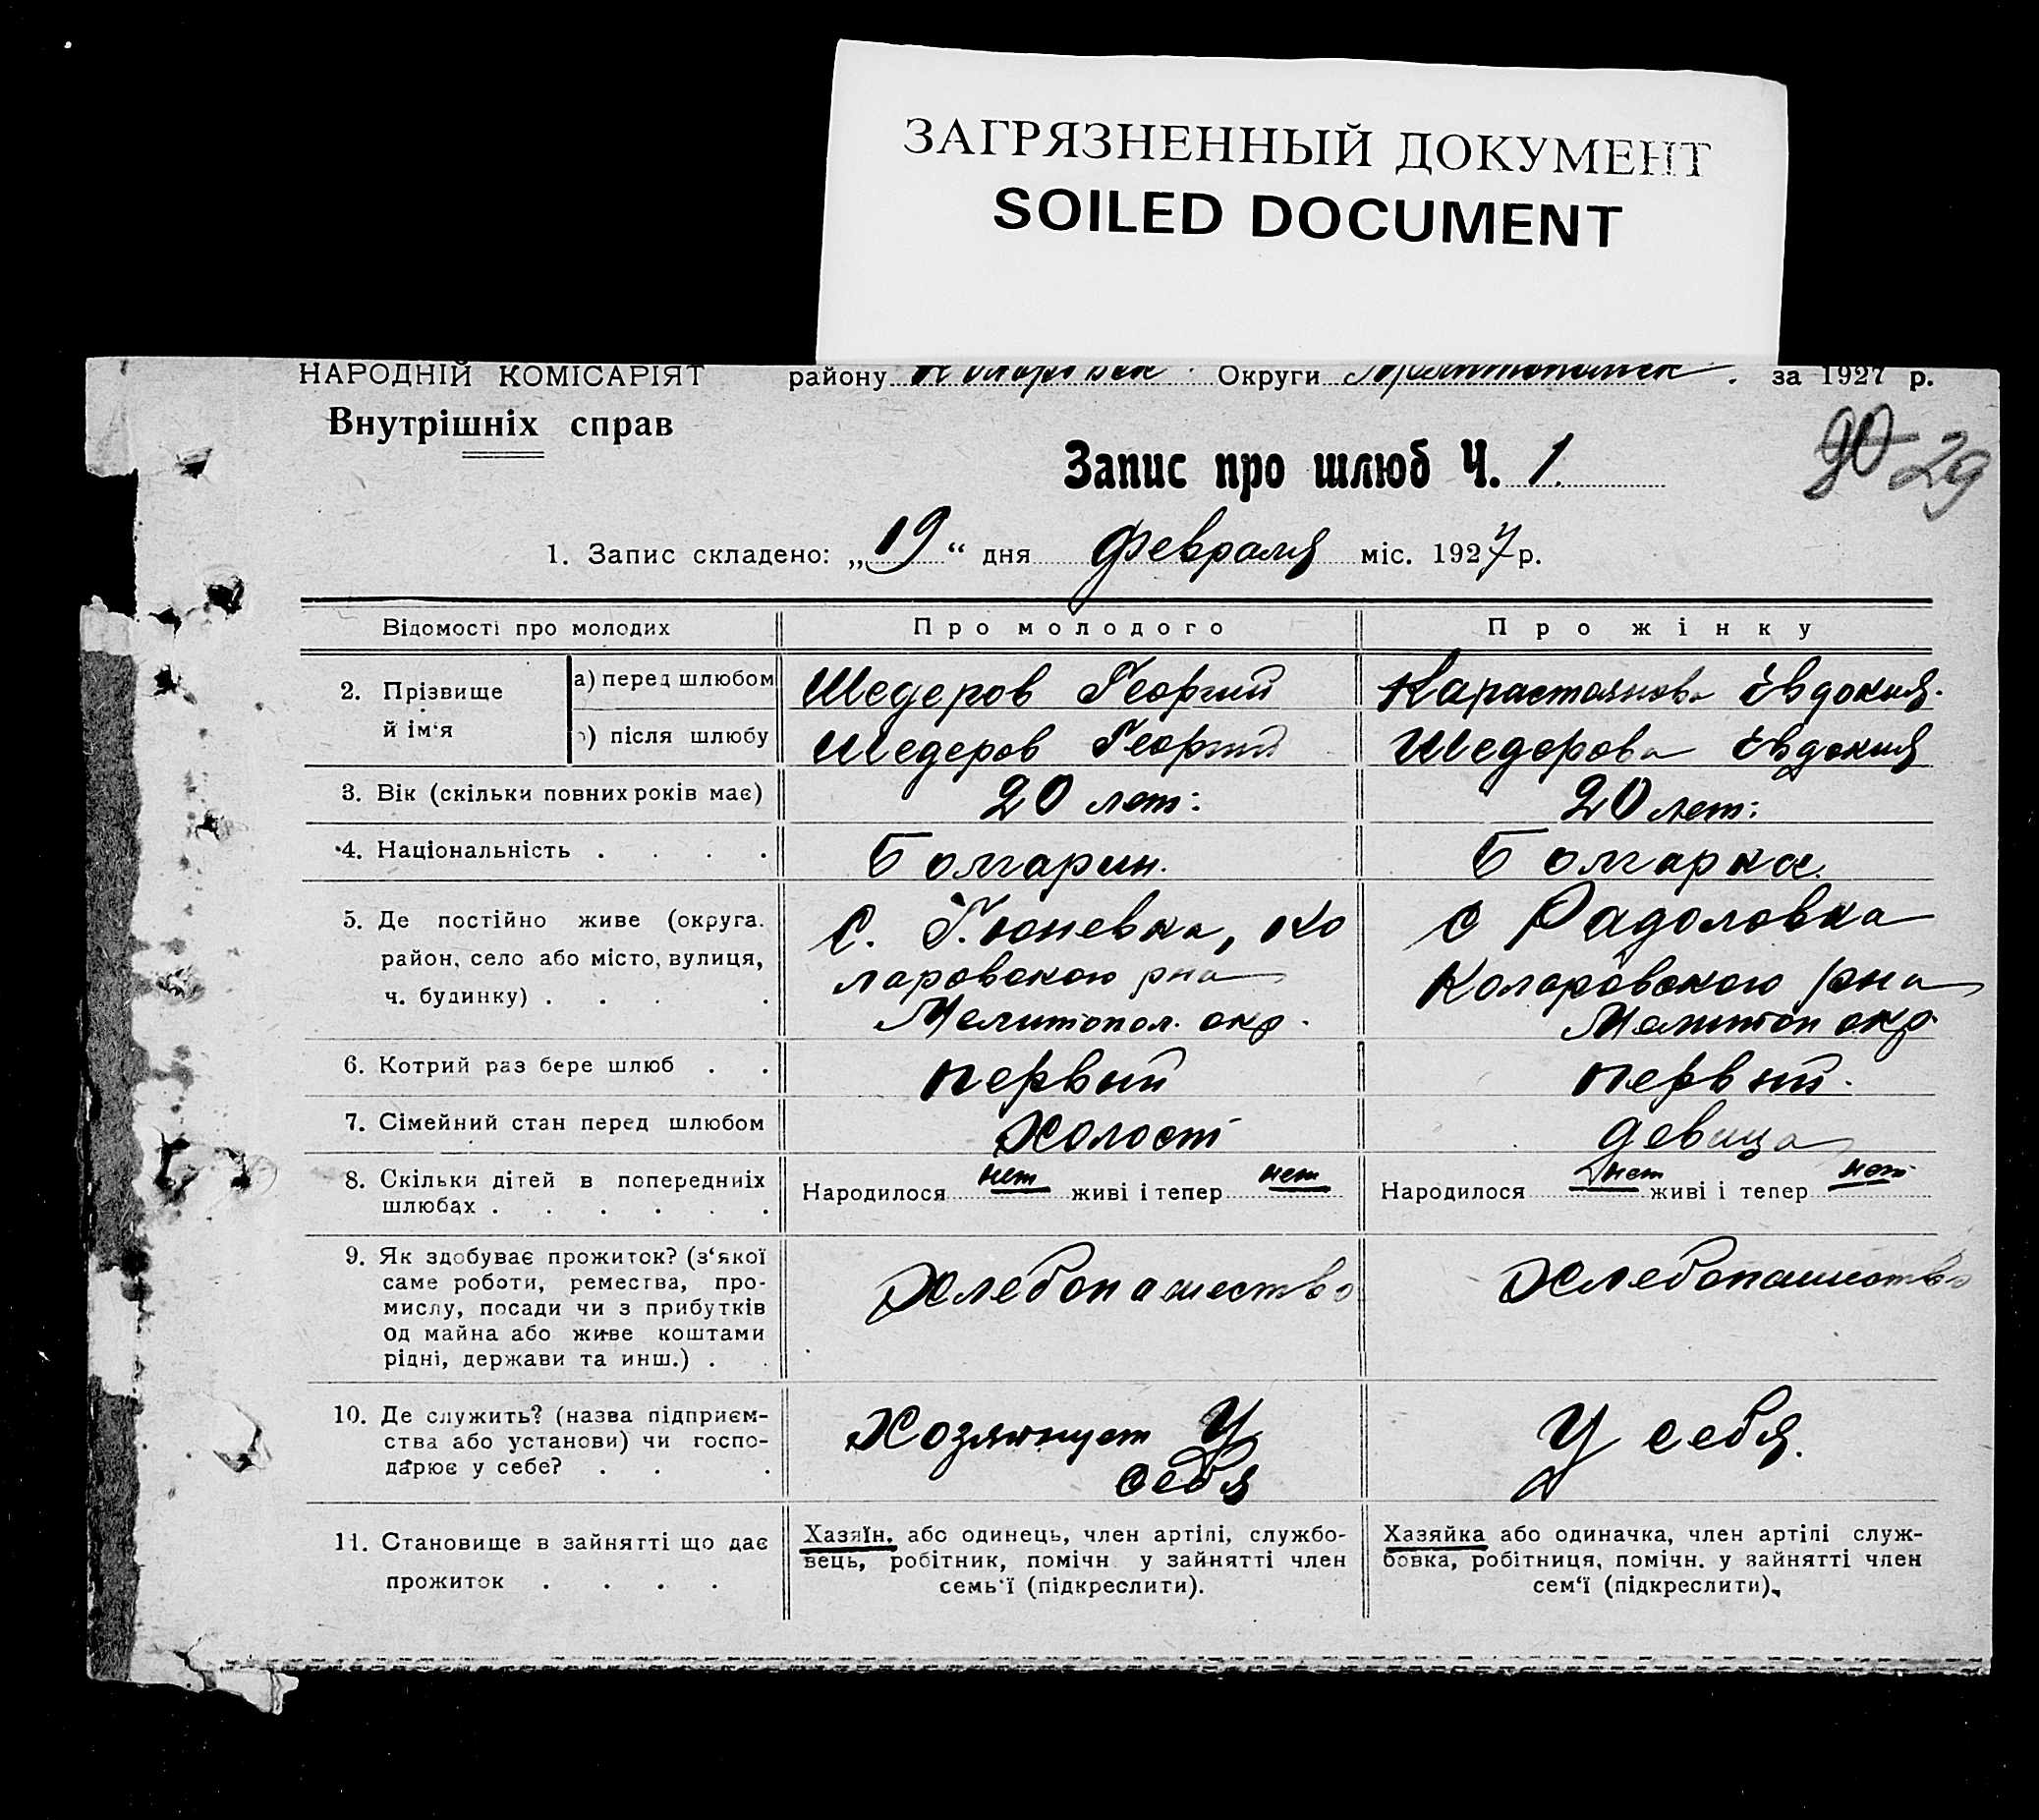 ЗАГРЯЗНЕННЫЙ ДОКУМЕНТ
SOILED DOCUMENT
НАРОДНІЙ КОМІСАРІЯТ району Округи за 1927 р.
Внутрішніх справ
90 29
Запис про шлюб Ч. 1.
1. Запис складено: „19“ дня февраля міс. 1927 р.
Відомості про молодих Про молодого Про жінку
2. Прізвище й ім‘я
а) перед шлюбом Шедеров Георгий Карастоянова Евдокия.
) після шлюбу Шедеров Георгий Шедерова Евдокия
3. Вік (скільки повних років має) 20 лет: 20 лет:
4. Національність . . . . Болгарин. Болгарка.
5. Де постійно живе (округа. район, село або місто, вулиця, ч. будинку) . . . .
С. Гюневка, Ко
ларовского рна
Мелитопол. окр.
с Радоловка
Коларовского рна
Мелитоп окр.
6. Котрий раз бере шлюб . . первый первый.
7. Сімейний стан перед шлюбом Холост девица
8. Скільки дітей в попередніх шлюбах . . . . . .
Народилося нет живі і тепер нет
Народилося нет живі і тепер нет
9. Як здобуває прожиток? (з‘якої
саме роботи, ремества, про-
мислу, посади чи з прибутків
од майна або живе коштами
рідні, держави та инш.) . .
Хлебопашество
Хлебопашество
10. Де служить? (назва підприєм-
ства або установи) чи госпо-
дарює у себе? . . .
Хозяинует У
себя
У себя.
11. Становище в зайнятті що дає
прожиток . . . .
Хазяїн, або одинець, член артілі, службо-
вець, робітник, помічн у зайнятті член
семь‘ї (підкреслити).
Хазяйка або одиначка, член артілі служ-
бовка, робітниця, помічн. у зайнятті член
сем‘ї (підкреслити).